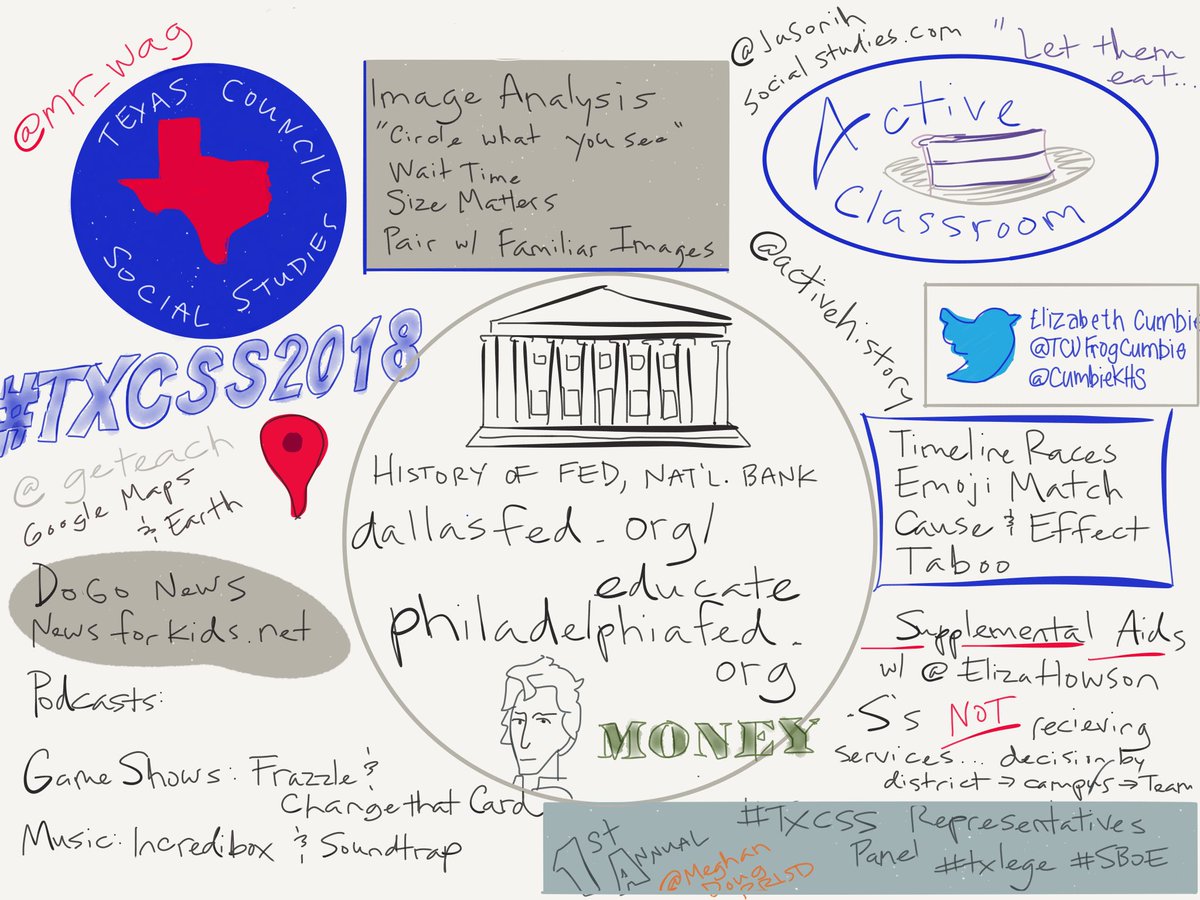 @mr_wag
TEXAS COUNCIL
SOCIAL STUDIES
#TXCSS2018
@geteach
Google Maps
& Earth
DoGo News
Newsforkids.net
Podcasts:
Game Shows: Frazzle &
Change that Card
Music: Incredibox & Soundtrap
Image Analysis
"Circle what you see"
Wait Time
Size Matters
Pair w/ Familiar Images
HISTORY OF FED, NAT'L. BANK
dallasfed.org/
educate
philadelphiafed.
org
MONEY
@Jasonih
Social Studies.com
"Let them
eat...
Active
Classroom
@activehistory
Elizabeth Cumbie
@TCUFrogCumbie
@CumbieKHS
Timeline Races
Emoji Match
Cause & Effect
Taboo
Supplemental Aids
w/ @ElizaHowson
-S's NOT recieving
Services... decision by
district → campus → Team
1st Annual
@Meghan
Doug
#TXCSS Representatives
Panel #txlege #SBOE